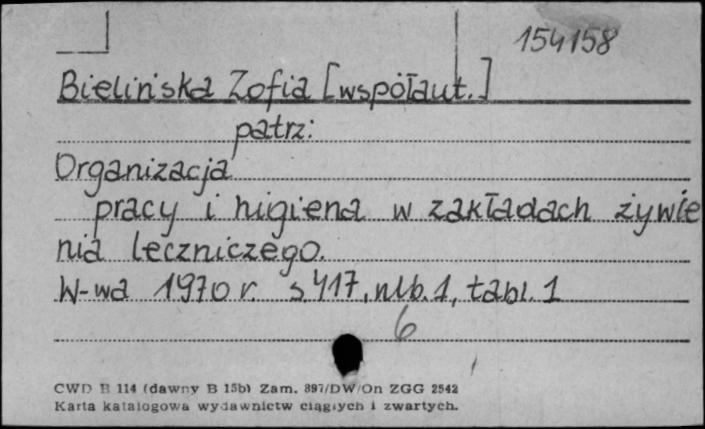 154158
Bielińska Zofia [współaut.]
patrz:
Organizacja
pracy i higiena w zakładach żywie
nia leczniczego.
W-wa 1970 r. s 417, nlb. 1, tabl. 1
6
CWD B 114 (dawny B 15b) Zam. 897/DW/On ZGG 2542
Karta katalogowa wydawnictw ciągłych i zwartych.